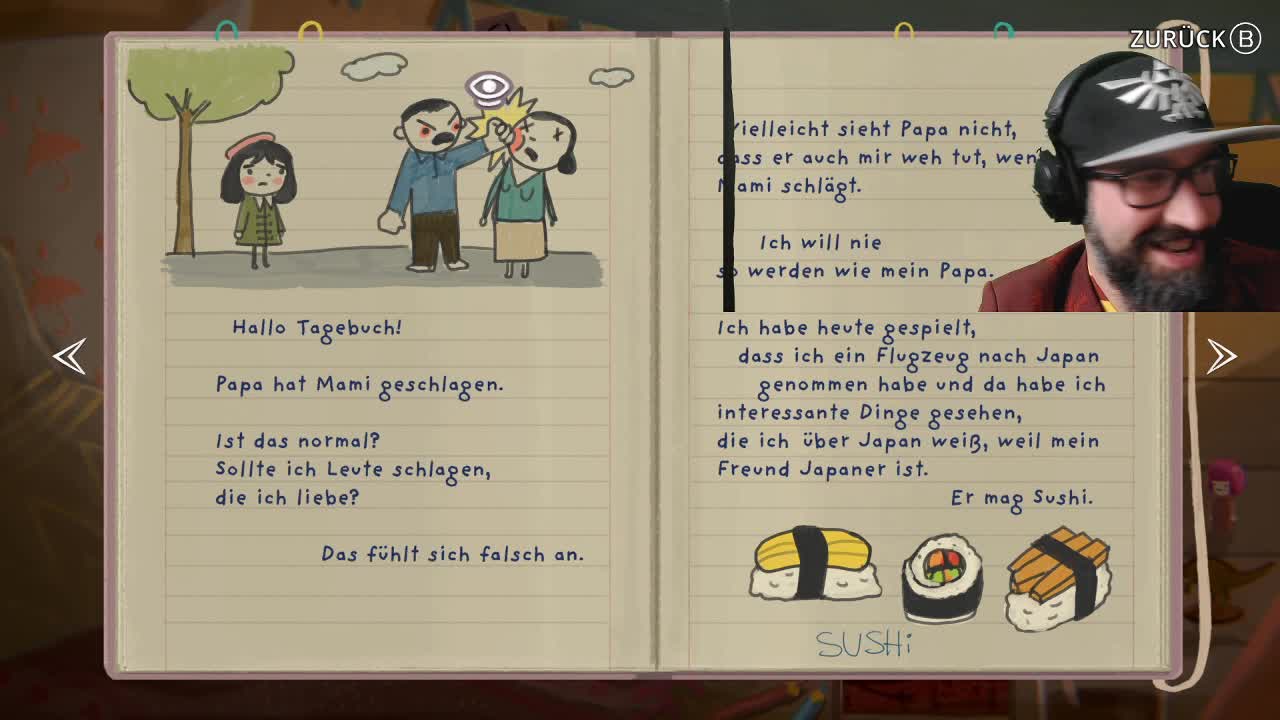 ZURÜCK B
Hallo Tagebuch!
Papa hat Mami geschlagen.
Ist das normal?
Sollte ich Leute schlagen,
die ich liebe?
Das fühlt sich falsch an.
Vielleicht sieht Papa nicht,
dass er auch mir weh tut, wenn
Mami schlägt.
Ich will nie
so werden wie mein Papa.
Ich habe heute gespielt,
dass ich ein Flugzeug nach Japan
genommen habe und da habe ich
interessante Dinge gesehen,
die ich über Japan weiß, weil mein
Freund Japaner ist.
Er mag Sushi.
SUSHi